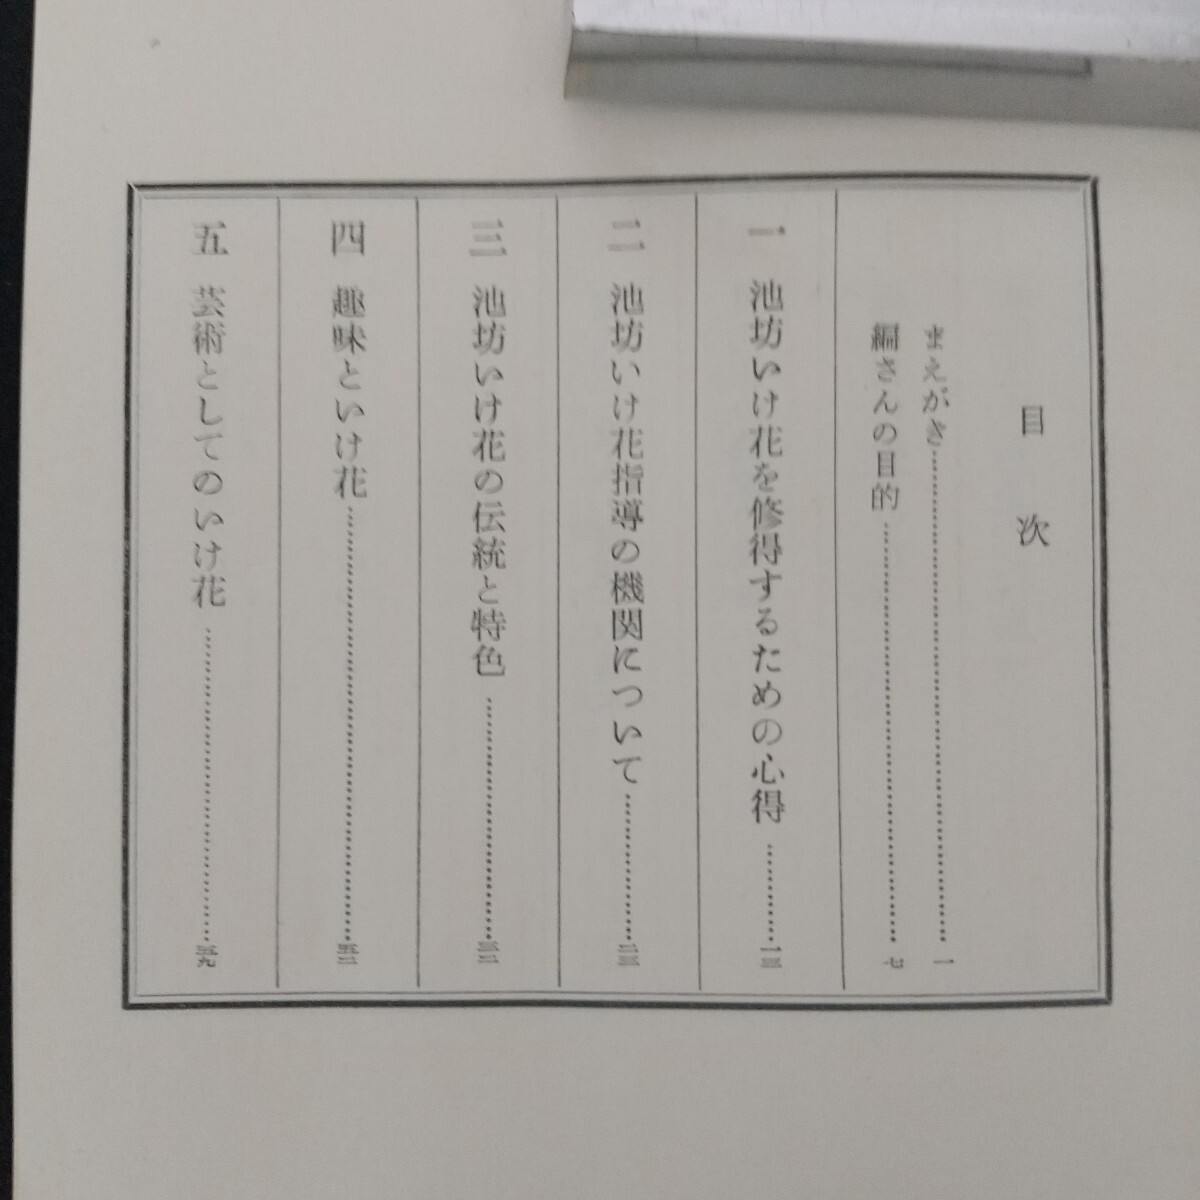 目次
まえがき……一
編さんの目的……七
一 池坊いけ花を修得するための心得……一三
二 池坊いけ花指導の機関について……二三
三 池坊いけ花の伝統と特色……三二
四 趣味といけ花……五二
五 芸術としてのいけ花……五九